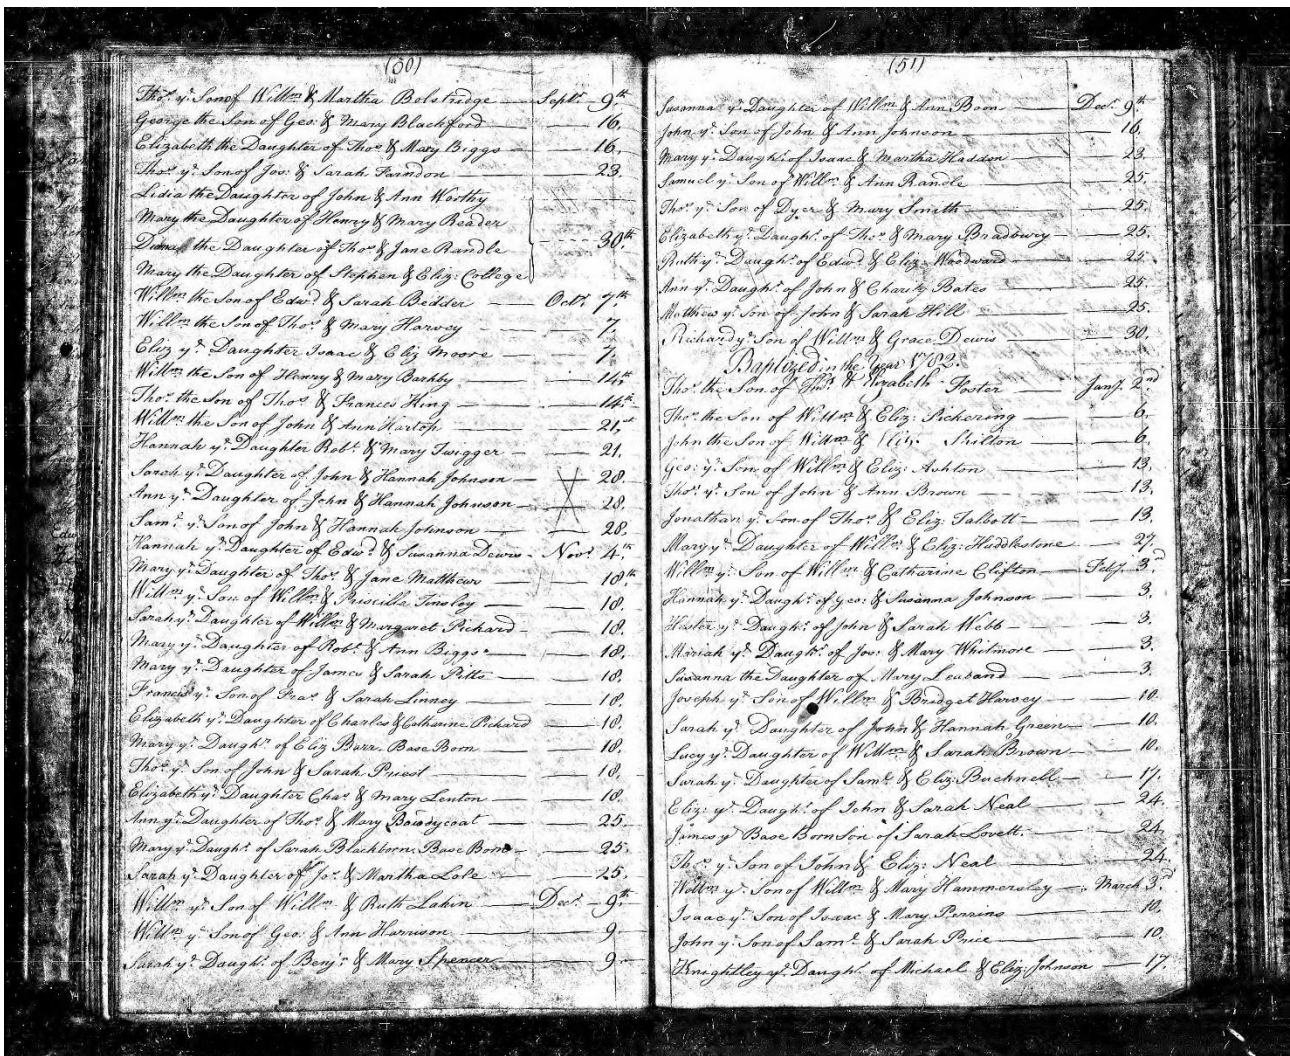 (50)
Thos. ye. Son of Willm & Martha Bolstridge — Septr. 9th.
George the Son of Geo: & Mary Blackford — 16.
Elizabeth the Daughter of Thos. & Mary Biggs — 16.
Thos. ye. Son of Jos: & Sarah Farndon — 23.
Lidia the Daughter of John & Ann Worthy
Mary the Daughter of Henry & Mary Reader
Diana the Daughter of Thos. & Jane Randle — 30th.
Mary the Daughter of Stephen & Eliz: College
Willm the Son of Edwd. & Sarah Bedder — Octr. 7th.
Willm the Son of Thos. & Mary Harvey — 7.
Eliz ye. Daughter Isaac & Eliz Moore — 7.
Willm the Son of Henry & Mary Barkby — 14th.
Thos. the Son of Thos. & Frances King — 14th.
Willm the Son of John & Ann Hartop — 21st
Hannah ye. Daughter Robt. & Mary Twigger — 21.
Sarah ye. Daughter of John & Hannah Johnson — 28.
Ann ye. Daughter of John & Hannah Johnson — 28.
Saml. ye. Son of John & Hannah Johnson — 28.
Hannah ye. Daughter of Edwd. & Susanna Dewis - Novr. 4th
Mary ye. Daughter of Thos. & Jane Matthews — 18th
Willm ye. Son of Willm & Priscilla Tonsley — 18.
Sarah ye. Daughter of Willm & Margaret Pichard — 18.
Mary ye. Daughter of Robt. & Ann Biggs — 18.
Mary ye. Daughter of James & Sarah Pitts — 18.
Francis ye. Son of Fras. & Sarah Linney — 18.
Elizabeth ye. Daughter of Charles & Catharine Pichard — 18.
Mary ye. Daughr. of Eliz Barr. Base Born — 18.
Thos. ye. Son of John & Sarah Priest — 18.
Elizabeth ye. Daughter Chas. & Mary Lenton — 18.
Ann ye. Daughter of Thos. & Mary Bowdycoat — 25.
Mary ye. Daughr. of Sarah Blackborn. Base Born — 25.
Sarah ye. Daughter of Jos. & Martha Lole — 25.
Willm ye. Son of Willm & Ruth Lakin — Decr. — 9th.
Willm ye. Son of Geo: & Ann Harrison — 9.
Sarah ye. Daughr. of Benjn. & Mary Spencer — 9.
(51)
Susanna ye. Daughter of Willm & Ann Boon — Decr. 9th.
John ye. Son of John & Ann Johnson — 16.
Mary ye. Daughr. of Isaac & Martha Haddon — 23.
Samuel ye. Son of Willm & Ann Randle — 25.
Thos. ye. Son of Dyer & Mary Smith — 25.
Elizabeth ye. Daughr. of Thos. & Mary Bradbury — 25.
Ruth ye. Daughr. of Edwd. & Eliz: Woodward — 25.
Ann ye. Daughr. of John & Charity Bates — 25.
Matthew ye. Son of John & Sarah Hill — 25.
Richard ye. Son of Willm & Grace Dewis — 30.
Baptized in the Year 1782.
Thos. the Son of Thos. & Elizabeth Foster — Jany. 2nd
Thos. the Son of Willm & Eliz: Pickering — 6.
John the Son of Willm & Eliz. Shilton — 6.
Geo: ye. Son of Willm & Eliz: Ashton — 13.
Thos. ye. Son of John & Ann Brown — 13.
Jonathan ye. Son of Thos. & Eliz: Talbott — 13.
Mary ye. Daughter of Willm & Eliz: Huddlestone — 27.
Willm ye. Son of Willm & Catharine Clifton — Feby. 3rd
Hannah ye. Daughr. of Geo: & Susanna Johnson — 3.
Hester ye. Daughr. of John & Sarah Webb — 3.
Mariah ye. Daughr. of Jos: & Mary Whitmore — 3.
Susanna the Daughter of Mary Leaband — 3.
Joseph ye. Son of Willm & Bridget Harvey — 10.
Sarah ye. Daughter of John & Hannah Green — 10.
Lucy ye. Daughter of Willm & Sarah Brown — 10.
Sarah ye. Daughter of Saml. & Eliz: Buchnell — 17.
Eliz: ye. Daughr. of John & Sarah Neal — 24.
James ye. Base Born Son of Sarah Lovett. — 24.
Thos. ye. Son of John & Eliz: Neal — 24.
Willm ye. Son of Willm & Mary Hammersley — March 3rd
Isaac ye. Son of Isaac & Mary Perrins — 10.
John ye. Son of Saml. & Sarah Price — 10.
Knightley ye. Daughr. of Michael & Eliz: Johnson — 17.